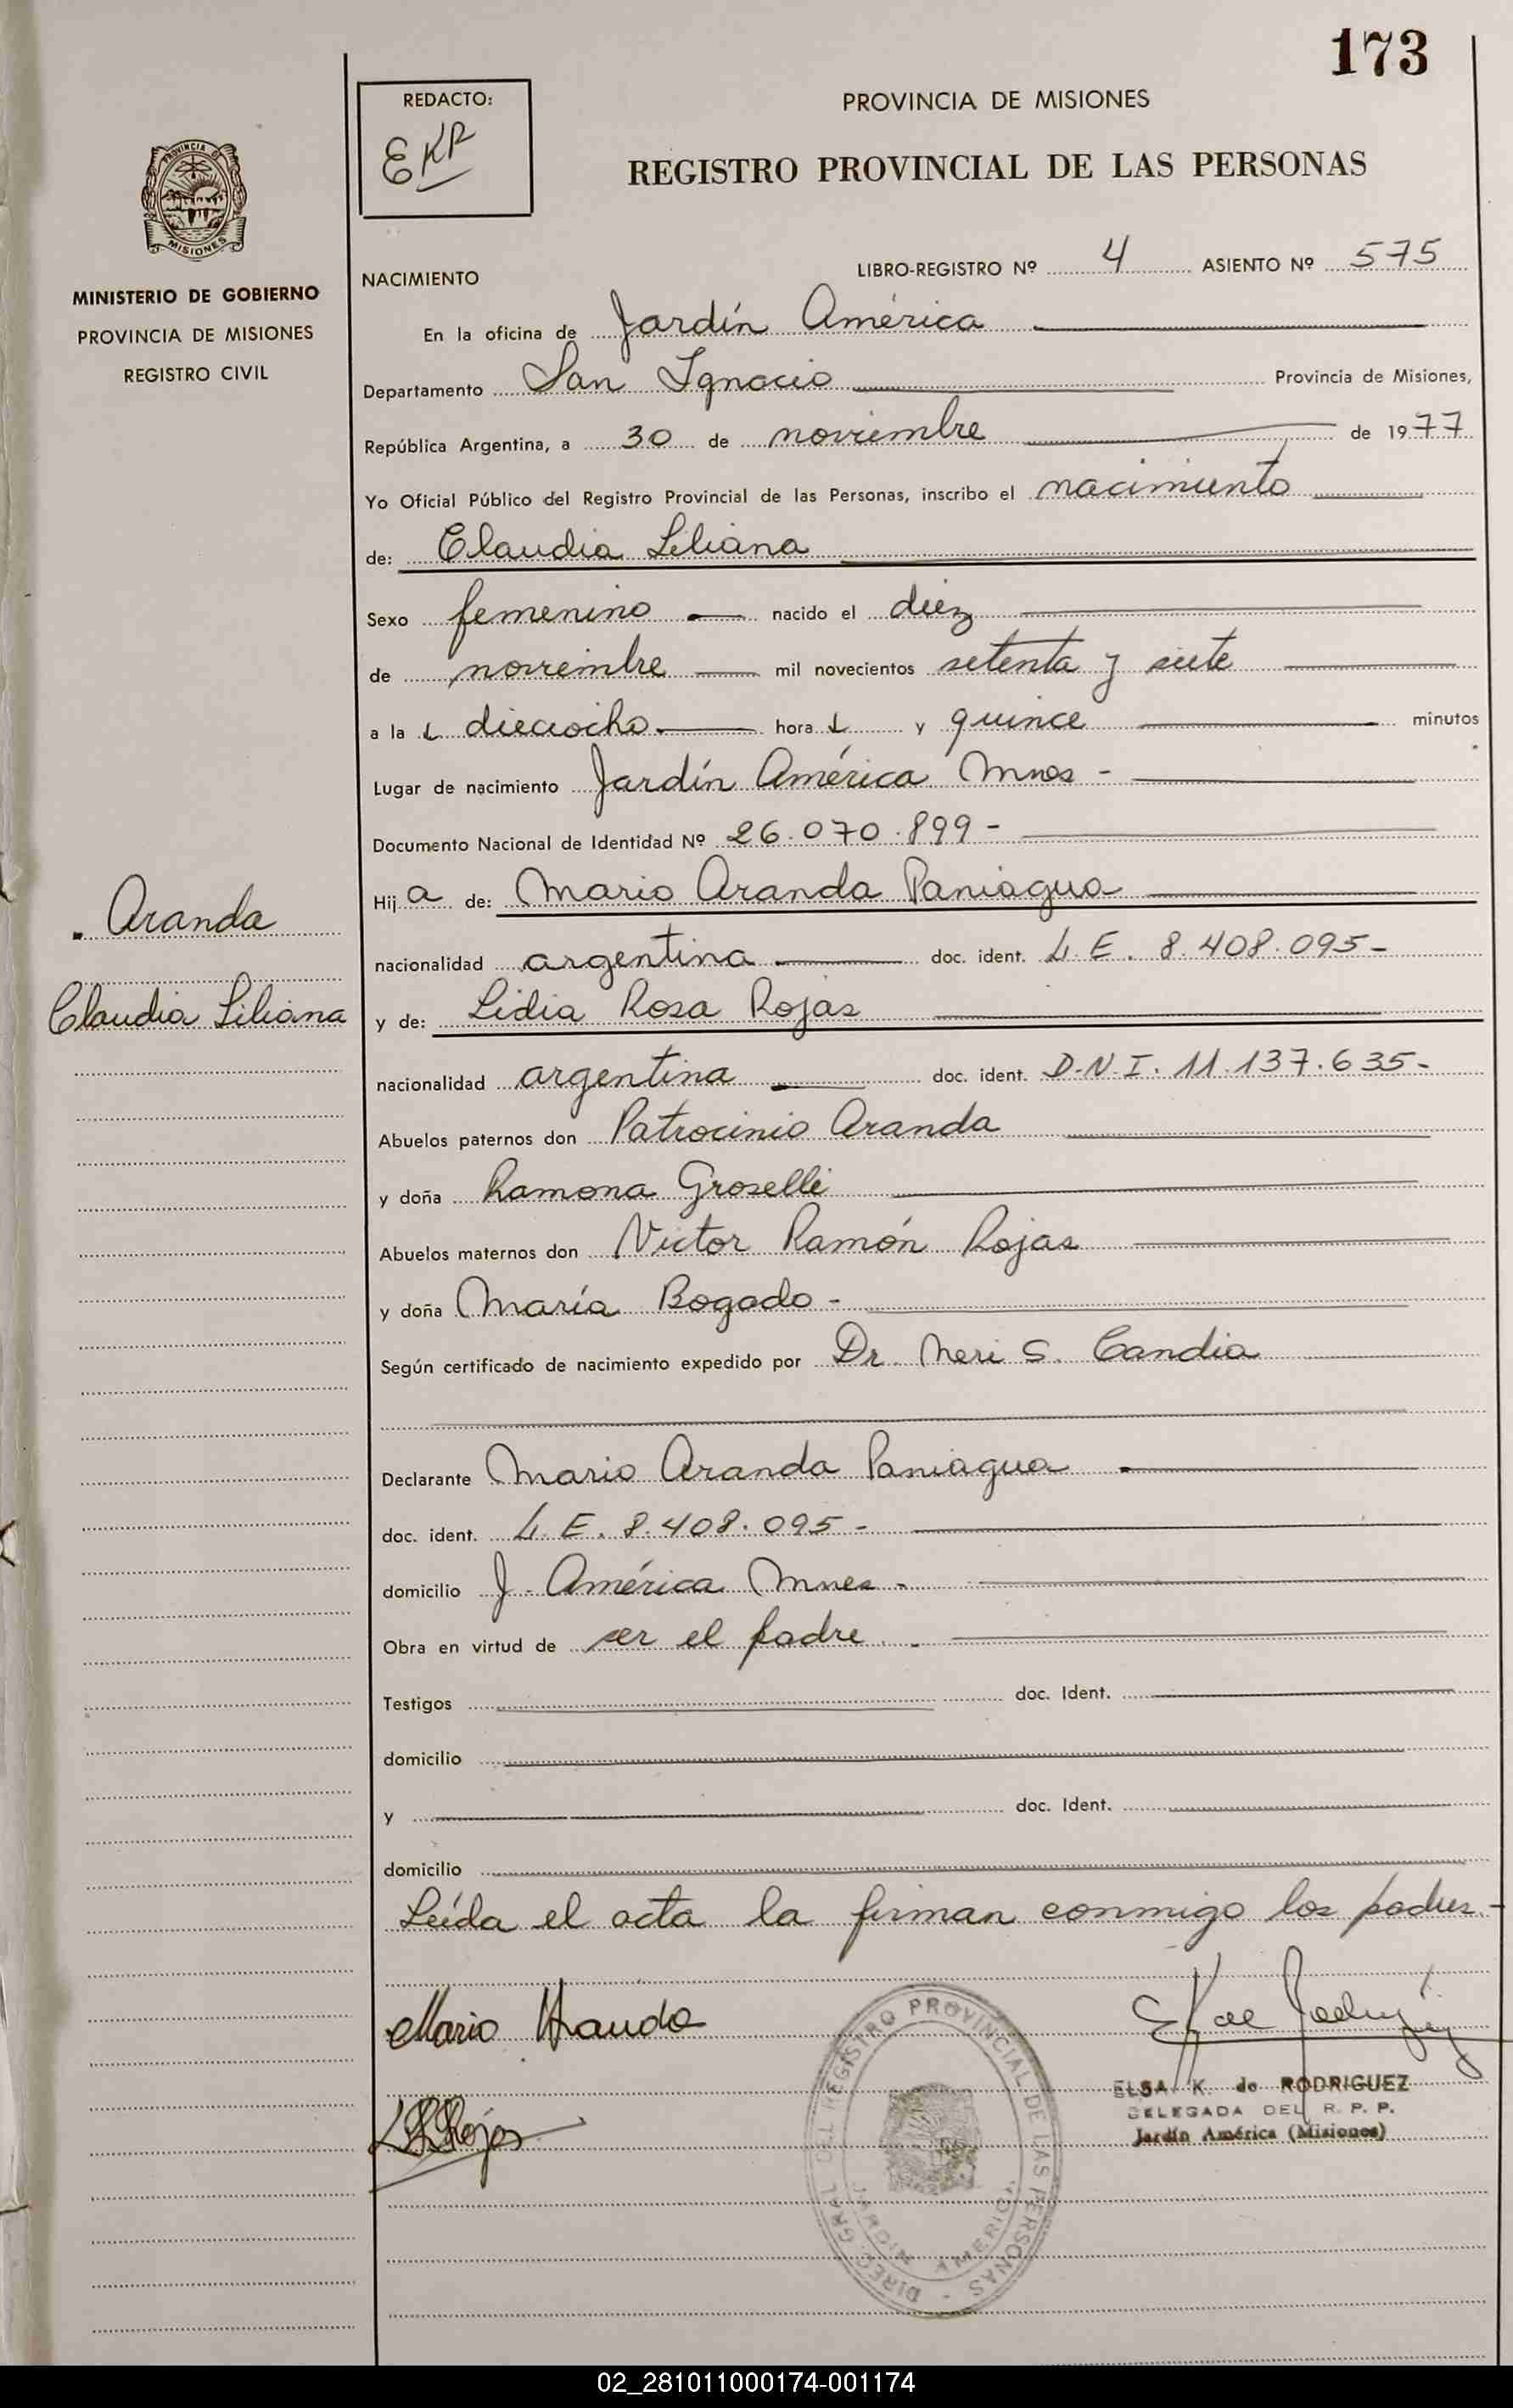 173
REDACTO:
EKR
PROVINCIA DE MISIONES
REGISTRO PROVINCIAL DE LAS PERSONAS
PROVINCIA DE
MISIONES
MINISTERIO DE GOBIERNO
PROVINCIA DE MISIONES
REGISTRO CIVIL
NACIMIENTO
LIBRO-REGISTRO Nº 4 ASIENTO Nº 575
En la oficina de Jardín América
Departamento San Ignacio Provincia de Misiones,
República Argentina, a 30 de noviembre de 1977
Yo Oficial Público del Registro Provincial de las Personas, inscribo el nacimiento
de: Claudia Liliana
Sexo femenino nacido el diez
de noviembre mil novecientos setenta y siete
a la s dieciocho hora s y quince minutos
Lugar de nacimiento Jardín América Mnes -
Documento Nacional de Identidad Nº 26.070.899-
Hija de: Mario Aranda Paniagua
Aranda
nacionalidad argentina doc. ident. L.E. 8.408.095-
Claudia Liliana
y de: Lidia Rosa Rojas
nacionalidad argentina doc. ident. D.N.I. 11.137.635-
Abuelos paternos don Patrocinio Aranda
y doña Ramona Groselli
Abuelos maternos don Victor Ramón Rojas
y doña María Bogado -
Según certificado de nacimiento expedido por Dr. Neri S. Candia
Declarante Mario Aranda Paniagua
doc. ident. L.E. 8.408.095 -
domicilio J. América Mnes -
Obra en virtud de ser el padre. -
Testigos doc. Ident.
domicilio
y doc. Ident.
domicilio
Leída el acta la firman conmigo los padres.-
Mario Aranda
LRRojas
DIREC. GRAL. DEL REGISTRO PROVINCIAL DE LAS PERSONAS -
JARDIN AMERICA
E K de Rodriguez
ELSA K. de RODRIGUEZ
DELEGADA DEL R. P. P.
Jardín América (Misiones)
02_281011000174-001174